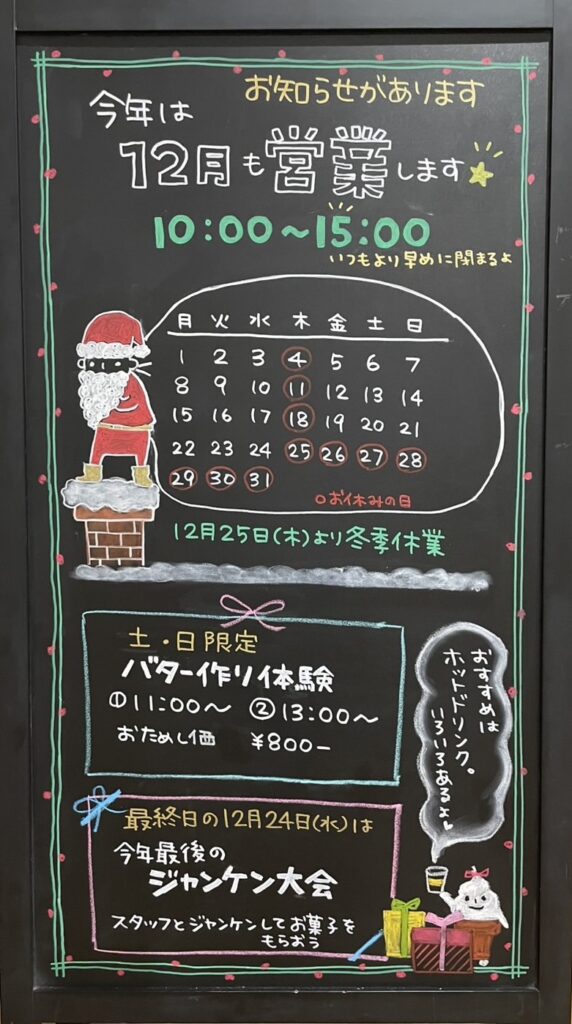 お知らせがあります
今年は
12月も営業します
10:00～15:00
いつもより早めに閉まるよ
月 火 水 木 金 土 日
1 2 3 4 5 6 7
8 9 10 11 12 13 14
15 16 17 18 19 20 21
22 23 24 25 26 27 28
29 30 31
○お休みの日
12月25日(木)より冬季休業
土・日限定
バター作り体験
①11:00～ ②13:00～
おためし価 ¥800-
おすすめは
ホットドリンク。
いろいろあるよ♥
最終日の12月24日(水)は
今年最後の
ジャンケン大会
スタッフとジャンケンしてお菓子を
もらおう